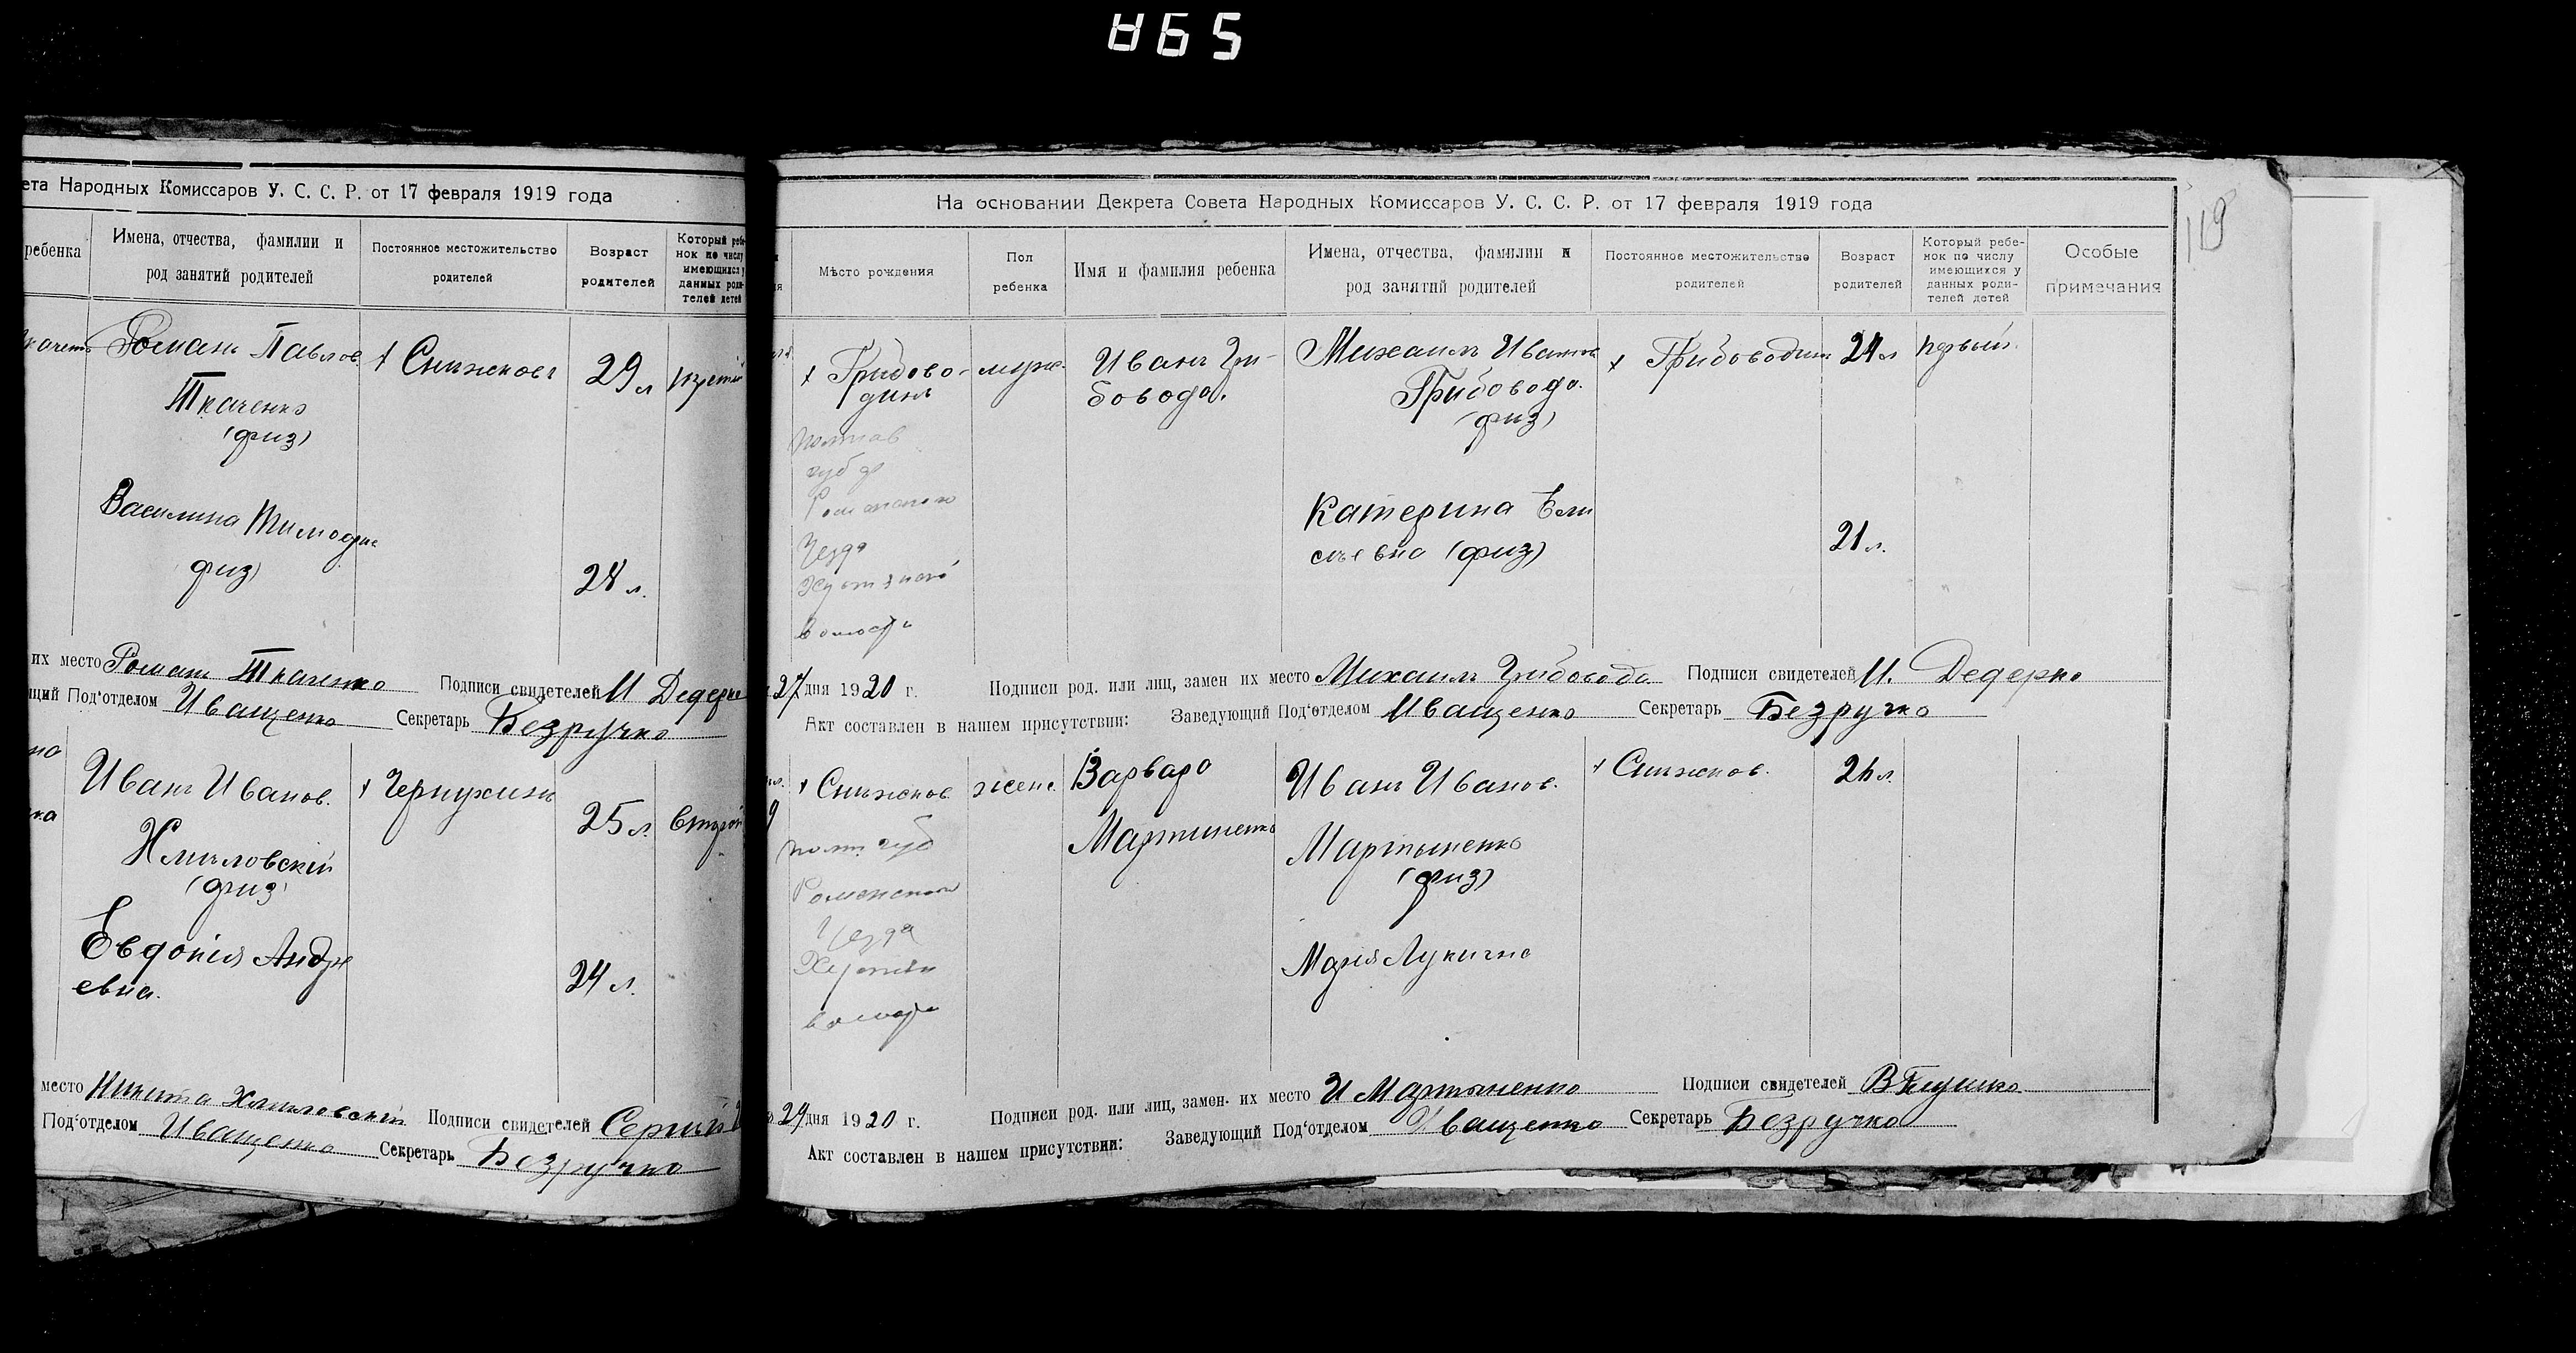 A65
119
ета Народных Комиссаров У. С. С. Р. от 17 февраля 1919 года
ребенка
Имена, отчества, фамилии и
род занятий родителей
Постоянное местожительство
родителей
Возраст
родителей
Который ребе-
нок по числу
имеющихся у
данных роди-
телей детей
Романъ Павлов
Ткаченко
(физ)
х Снижковъ
29 л
Василина Тимофие
физ)
28 л.
их место Роман Ткаченко Подписи свидетелей И Дедерко
щий Под‘отделом Иващенко Секретарь Безручко
Иванъ Иванов.
Хмиловскій
(физ)
х Чернухинъ
25 л.
второй
Евдокія Андре
евна.
24 л.
место Никита Хмиловский Подписи свидетелей Сергий
Под‘отделом Иващенко Секретарь Безручко
На основании Декрета Совета Народных Комиссаров У. С. С. Р. от 17 февраля 1919 года
Мѣсто рождения
Пол
ребенка
Имя и фамилия ребенка
Имена, отчества, фамилии и
род занятий родителей
Постоянное местожительство
родителей
Возраст
родителей
Который ребе-
нок по числу
имеющихся у
данных роди-
телей детей
Особые
примечания
х Грибово-
динъ
Полтав
губ
Роменского
Уезда
волости
муж.
Иванъ Гри-
бовода.
Михаилъ Иванов
Грибовода.
(физ)
х Грибоводинъ
24 л
первый.
Катерина Ели
сѣевна (физ)
21 л.
27 дня 1920 г. Подписи род. или лиц, замен их место Михаилъ Грибовода Подписи свидетелей И. Дедерко
Акт составлен в нашем присутствии: Заведующий Под‘отделом Иващенко Секретарь Безручко
х Снижков
Полт губ
Роменского
Уезда
волости
женс.
Варвара
Мартиненко
Иванъ Иванов.
Мартыненко
(физ)
х Снижков.
26 л.
Марія Лукична
27 дня 1920 г. Подписи род. или лиц, замен. их место И Мартыненко Подписи свидетелей В Глушко
Акт составлен в нашем присутствии: Заведующий Под‘отделом Иващенко Секретарь Безручко